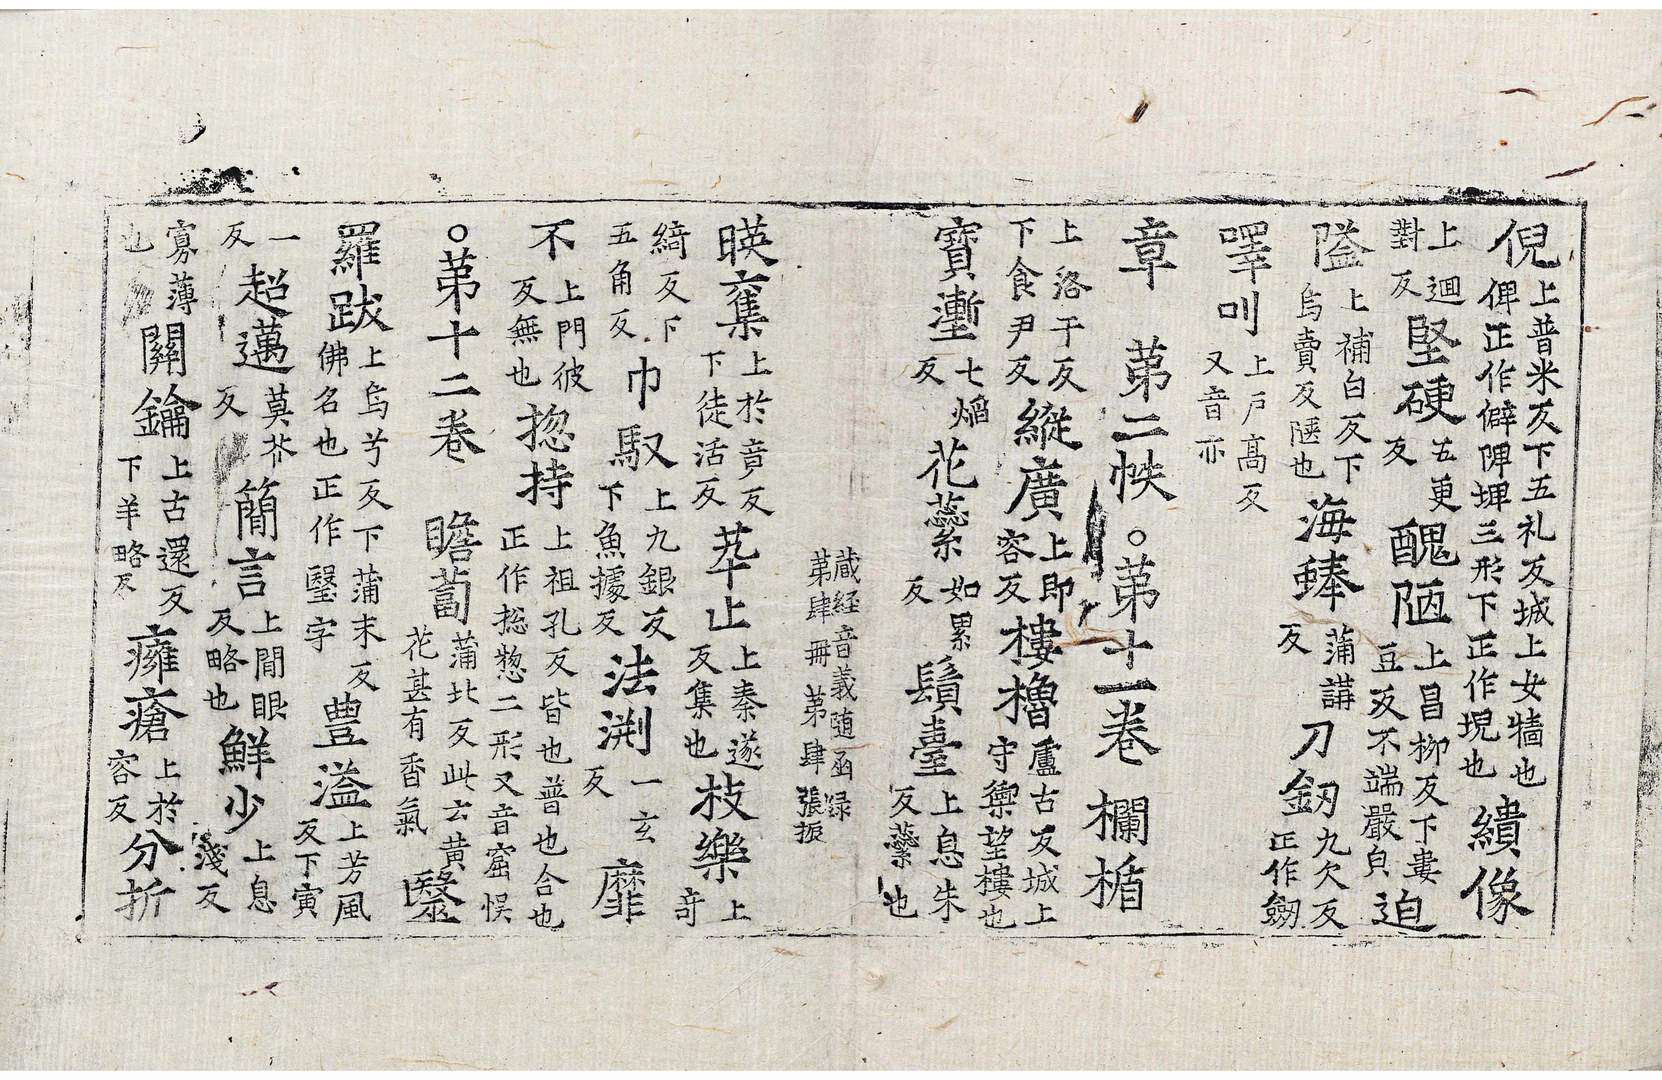 倪上普米反下五礼反城上女牆也俾正作僻陴埤三形下正作堄也繢像
上迴對反堅硬五更反醜陋上昌柳反下婁豆反不端嚴皃迫
隘上補白反下烏賣反陿也海蜯蒲講反刀釖九欠反正作劒
嘷叫上戶高反又音亦
章 第二帙○第十一卷 欄楯
上洛干反下食尹反縱廣上即容反樓櫓盧古反城上守禦望樓也
寶壍七焰反花蘂如累反鬚臺上息朱反蘂也
藏経音義随函録
第肆冊 第肆 張振
暎奪上於竟反下徒活反萃止上秦遂反集也枝樂上奇
綺反下五角反巾馭上九銀反下魚據反法渕一玄反靡
不上門彼反無也揔持上祖孔反皆也普也合也正作捴惣二形又音窟悞
○第十二卷 瞻蔔蒲北反此云黄花甚有香氣毉
羅跋上烏兮反下蒲末反佛名也正作毉字豊溢上芳風反下寅
一反超邁莫芥反簡言上閒眼反略也鮮少上息淺反
寡薄也關鑰上古還反下羊略反癕瘡上於容反分折